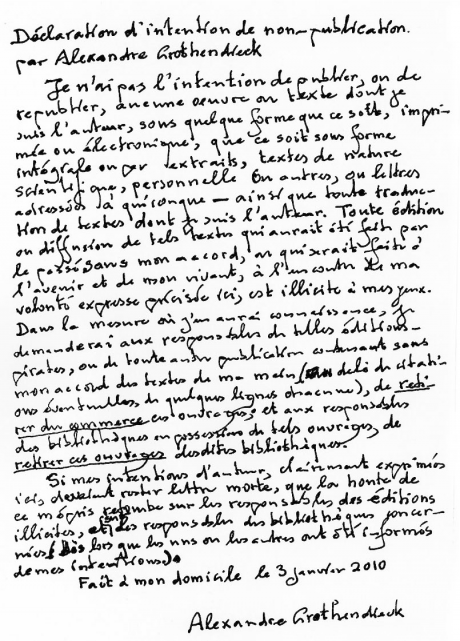 Déclaration d'intention de non-publication.
par Alexandre Grothendieck
Je n'ai pas l'intention de publier, ou de
republier, aucune œuvre ou texte dont je
suis l'auteur, sous quelque forme que ce soit, impri-
mée ou électronique, que ce soit sous forme
intégrale ou par extraits, textes de nature
scientifique, personnelle ou autres, ou lettres
adressées à quiconque — ainsi que toute traduc-
tion de textes dont je suis l'auteur. Toute édition
ou diffusion de tels textes qui aurait été faite par
le passé sans mon accord, ou qui serait faite à
l'avenir et de mon vivant, à l'encontre de ma
volonté expresse précisée ici, est illicite à mes yeux.
Dans la mesure où j'en aurai connaissance, je
demanderai aux responsables de telles éditions-
pirates, ou de toute autre publication contenant sans
mon accord des textes de ma main (au delà de citati-
ons éventuelles de quelques lignes chacune), de reti-
rer du commerce ces ouvrages; et aux responsables
des bibliothèques en possession de tels ouvrages, de
retirer ces ouvrages desdites bibliothèques.
Si mes intentions d'auteur, clairement exprimées
ici, devaient rester lettre morte, que la honte de
ce mépris retombe sur les responsables des éditions
illicites, et sur les responsables des bibliothèques concer-
nées (dès lors que les uns ou les autres ont été informés
de mes intentions).
Fait à mon domicile le 3 janvier 2010
Alexandre Grothendieck